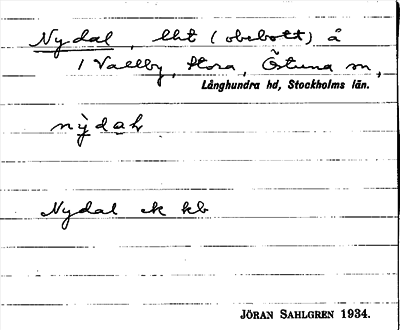 Nydal, lht (obebott) å
1 Vallby, Stora, Östuna sn,
Långhundra hd, Stockholms län.
nỳdaḷ
Nydal ek kb
JÖRAN SAHLGREN 1934.